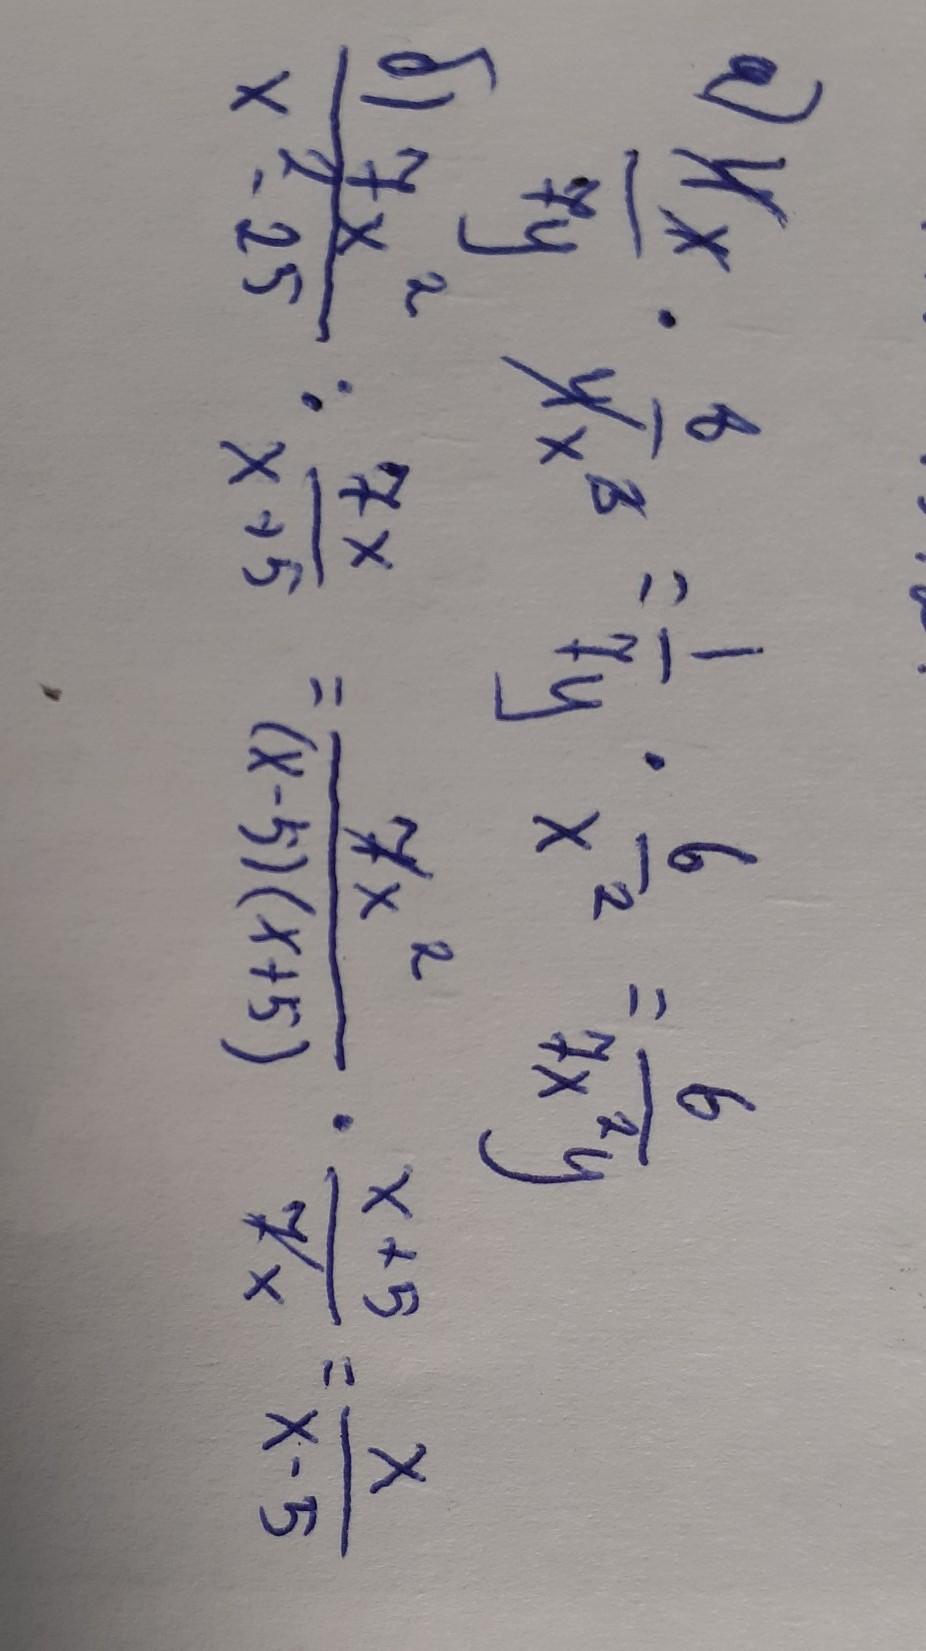 а) 4x/7y · 6/4x³ = 1/7y · 6/x² = 6/7x²y
б) 7x²/x²-25 : 7x/x+5 = 7x²/(x-5)(x+5) · x+5/7x = x/x-5